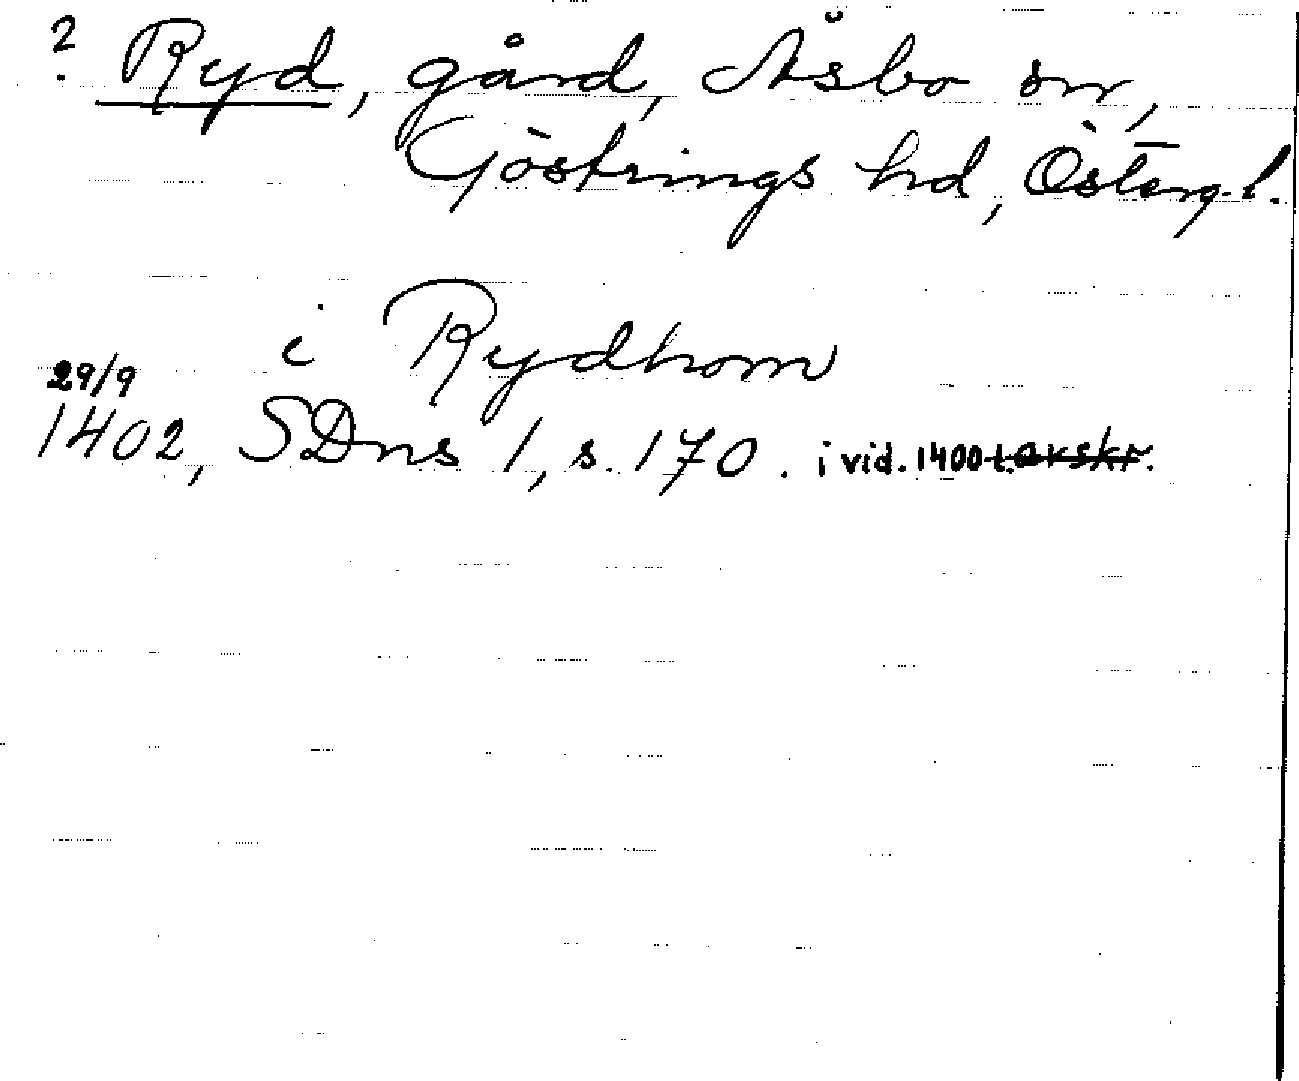 ? Ryd, gård, Åsbo sn,
Göstrings hd, Österg.l.
i Rydhom
29/9
1402, SDns 1, s. 170. i vid. 1400 t.avskr.